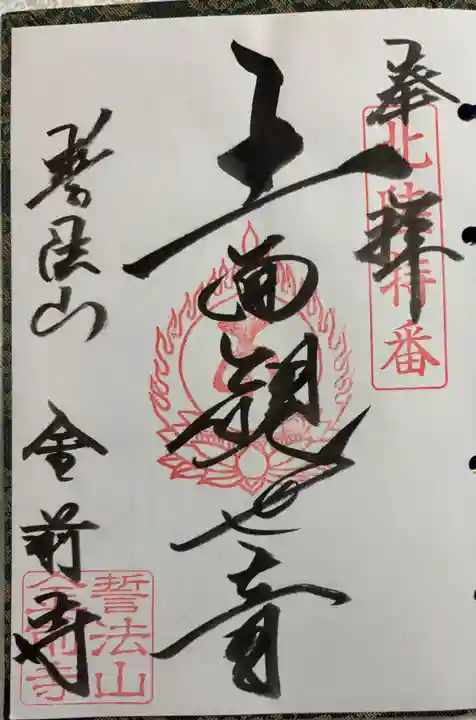 奉拝
北陸特番
十一面観世音
誓法山 金前寺
誓法山
金前寺